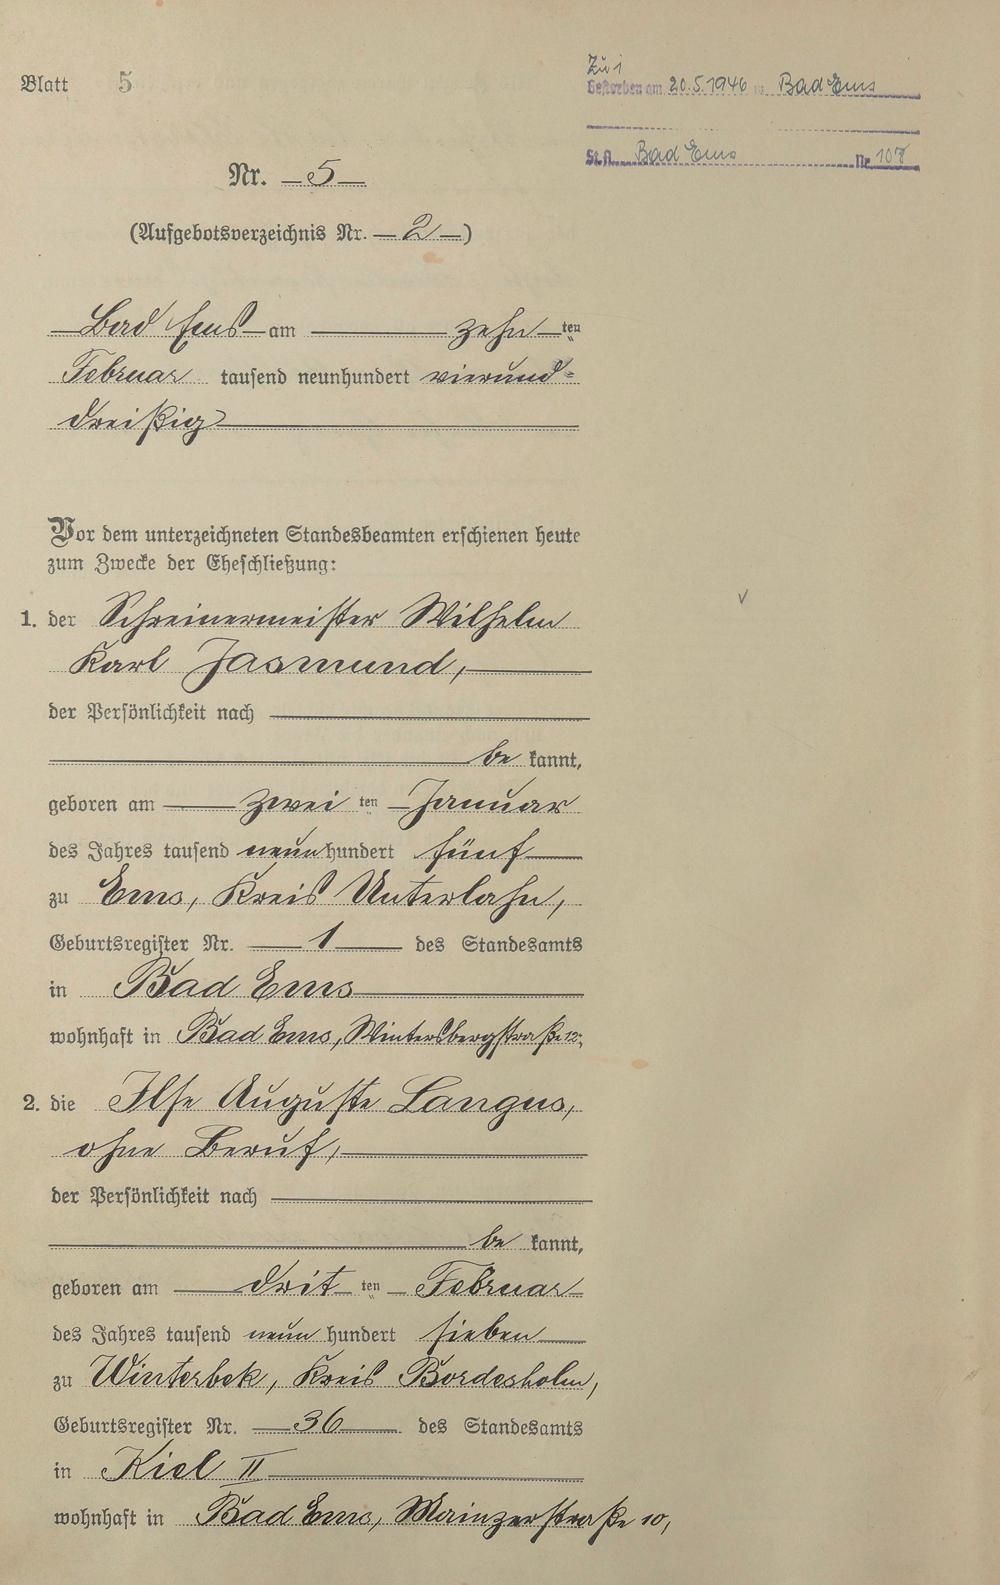 Blatt 5
Zu 1
Gestorben am 20.5.1946 in Bad Ems
St.A. Bad Ems Nr. 107
Nr. 5
(Aufgebotsverzeichnis Nr. 2)
Bad Ems am zehn ten
Februar tausend neunhundert vierund-
dreißig
Vor dem unterzeichneten Standesbeamten erschienen heute
zum Zwecke der Eheschließung:
1. der Schreinermeister Wilhelm
Karl Jasmund,
der Persönlichkeit nach
be kannt,
geboren am zwei ten Januar
des Jahres tausend neun hundert fünf
zu Ems, Kreis Unterlahn,
Geburtsregister Nr. 1 des Standesamts
in Bad Ems
wohnhaft in Bad Ems, Wintersbergstraße 12,
2. die Ilse Auguste Langus,
ohne Beruf,
der Persönlichkeit nach
be kannt,
geboren am drit ten Februar
des Jahres tausend neun hundert sieben
zu Winterbek, Kreis Bordesholm,
Geburtsregister Nr. 36 des Standesamts
in Kiel II
wohnhaft in Bad Ems, Mainzerstraße 10,